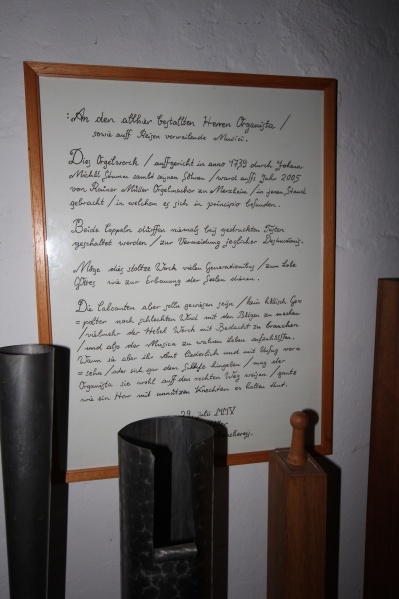 : An den allhier bestallten Herren Organista /
sowie auff Reisen verweilende Musici.
Dies Orgelwerck / auffgericht in anno 1739 durch Johann
Michäll Stumm sambt seynen Söhnen / ward auffs Jahr 2005
von Rainer Müller Orgelmacher zu Merxheim / in jenen Stand
gebracht / in welchem es sich in principio befunden.
Beide Coppeln dürffen niemals bey gedruckten Tasten
geschaltet werden / zur Vermeidung jeglicher
Möge dies stoltze Werck vielen Generationibus / zum Lobe
Gottes wie zur Erbauung der Seelen dienen.
Die Calcanten aber solln gewiesen seyn / kein höllisch Ge=
=polter noch schlechten Wind mit den Bälgen zu machen
/ vielmehr der Hebel Werck mit Bedacht zu brauchen
/ und also der Musica zu wahrem Leben aufzuhelffen.
Wann sie aber ihr Amt liederlich und mit Unfug vers=
=sehn / oder sich gar dem Schlaffe hingeben / mag der
Organista sie wohl auff den rechten Weg weisen / gantz
wie ein Herr mit unnützen Knechten es halten thut.
29. July MMV